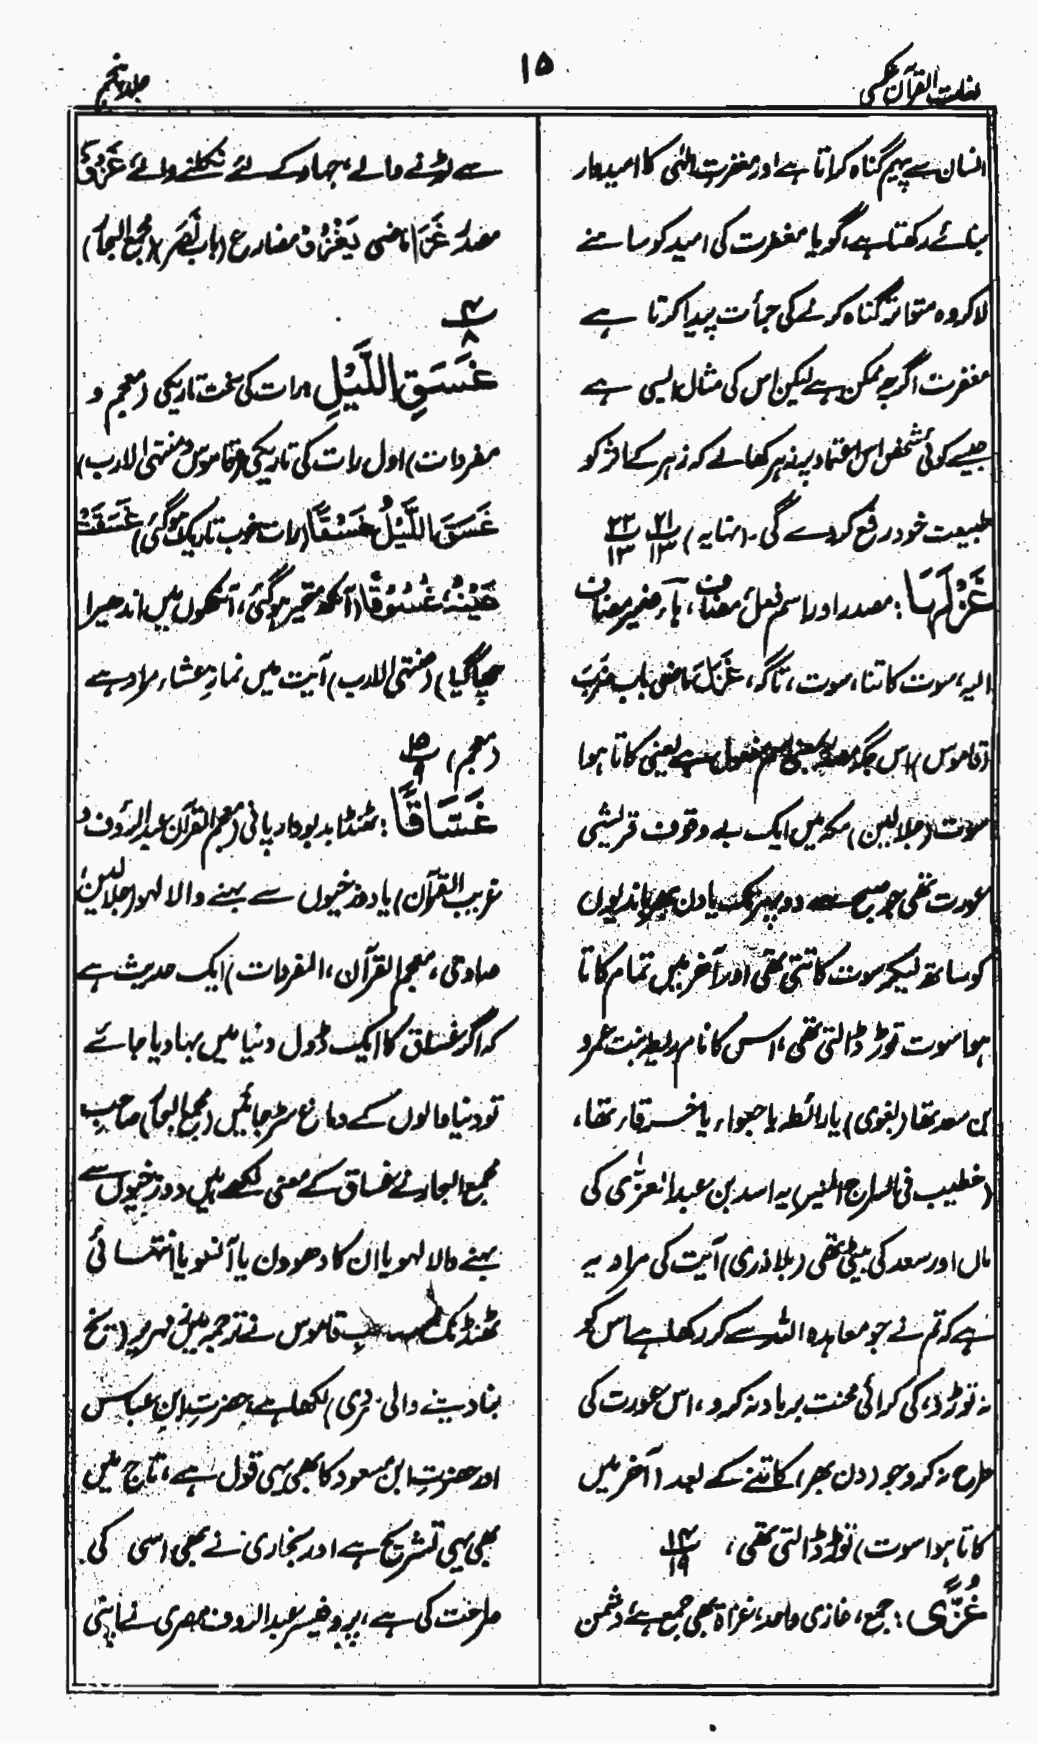 لغات القرآن عکسی
۱۵
جلد پنجم
انسان سے پیہم گناہ کراتا ہے اور مغفرت الٰہی کا امیدوار
بنائے رکھتا ہے، گویا مغفرت کی امید کو سامنے
لا کر وہ متواتر گناہ کرنے کی جرأت پیدا کرتا ہے
مغفرت اگرچہ ممکن ہے لیکن اس کی مثال ایسی ہے
جیسے کوئی شخص اس اعتماد پر زہر کھالے کہ زہر کے اثر کو
طبیعت خود رفع کردے گی۔ (نہایہ) ۲۱/۱۳ ۲۲/۱۳
غَزْلَہَا : مصدر اور اسم فعل مضاف، ہاء ضمیر مضاف
الیہ، سوت کاتنا، سوت، تاگہ، غَزَلَ ماضی باب ضَرَبَ
(قاموس) اس جگہ مصدر بمعنی اسم مفعول ہے یعنی کاتا ہوا
سوت (جلالین) مکہ میں ایک بے وقوف قریشی
عورت تھی جو صبح سے دوپہر تک یا دن بھر باندیوں
کو ساتھ لیکر سوت کاتتی تھی اور آخر میں تمام کاتا
ہوا سوت توڑ ڈالتی تھی، اس کا نام ریطہ بنت عمرو
بن سعد تھا (بغوی) یا رائطہ یا جعواء یا خرقاء تھا،
(خطیب فی السراج المنیر) یہ اسد بن عبد العزّٰی کی
ماں اور سعد کی بیٹی تھی (بلاذری) آیت کی مراد یہ
ہے کہ تم نے جو معاہدہ اللہ سے کر رکھا ہے اس کو
نہ توڑو، کی کرائی محنت برباد نہ کرو، اس عورت کی
طرح نہ کرو جو (دن بھر) کاتنے کے بعد (آخر میں
کاتا ہوا سوت) توڑ ڈالتی تھی، ۱۴/۱۹
غُزًّی : جمع، غازی واحد، غزاۃ بھی جمع ہے، دشمن
سے لڑنے والے، جہاد کے لئے نکلنے والے غَزْوٌ
مصدر غَزَا ماضی یَغْزُوْ مضارع (باب نَصَرَ) (مجمع البحار)
۴/۸
غَسَقِ اللَّیْلِ : رات کی سخت تاریکی (معجم و
مفردات) اول رات کی تاریکی (قاموس و منتہی الارب)
غَسَقَ اللَّیْلُ غَسْقًا (رات خوب تاریک ہوگئی) غَسَقَتْ
عَیْنُہٗ غُسُوْقًا (آنکھ متحیر ہوگئی، آنکھوں میں اندھیرا
چھا گیا) (منتہی الارب) آیت میں نمازِ عشاء مراد ہے
(معجم) ۱۵/۹
غَسَّاقًا : ٹھنڈا بدبودار پانی (معجم القرآن عبد الرؤف و
غریب القرآن) یا دوزخیوں سے بہنے والا لہو (جلالین،
صاوی، معجم القرآن، المفردات) ایک حدیث ہے
کہ اگر غساق کا ایک ڈول دنیا میں بہا دیا جائے
تو دنیا والوں کے دماغ سڑ جائیں (مجمع البحار) صاحبِ
مجمع البحار نے غساق کے معنی لکھے ہیں دوزخیوں سے
بہنے والا لہو یا ان کا دھوون یا آنسو یا انتہائی
ٹھنڈک صاحبِ قاموس نے ترجمہ میں زمہریر (یخ
بنا دینے والی سردی) لکھا ہے، حضرت ابن عباس
اور حضرت ابن مسعود کا بھی یہی قول ہے، تاج میں
بھی یہی تشریح ہے اور بخاری نے بھی اسی کی
صراحت کی ہے، پروفیسر عبد الرؤف مصری نے اپنی